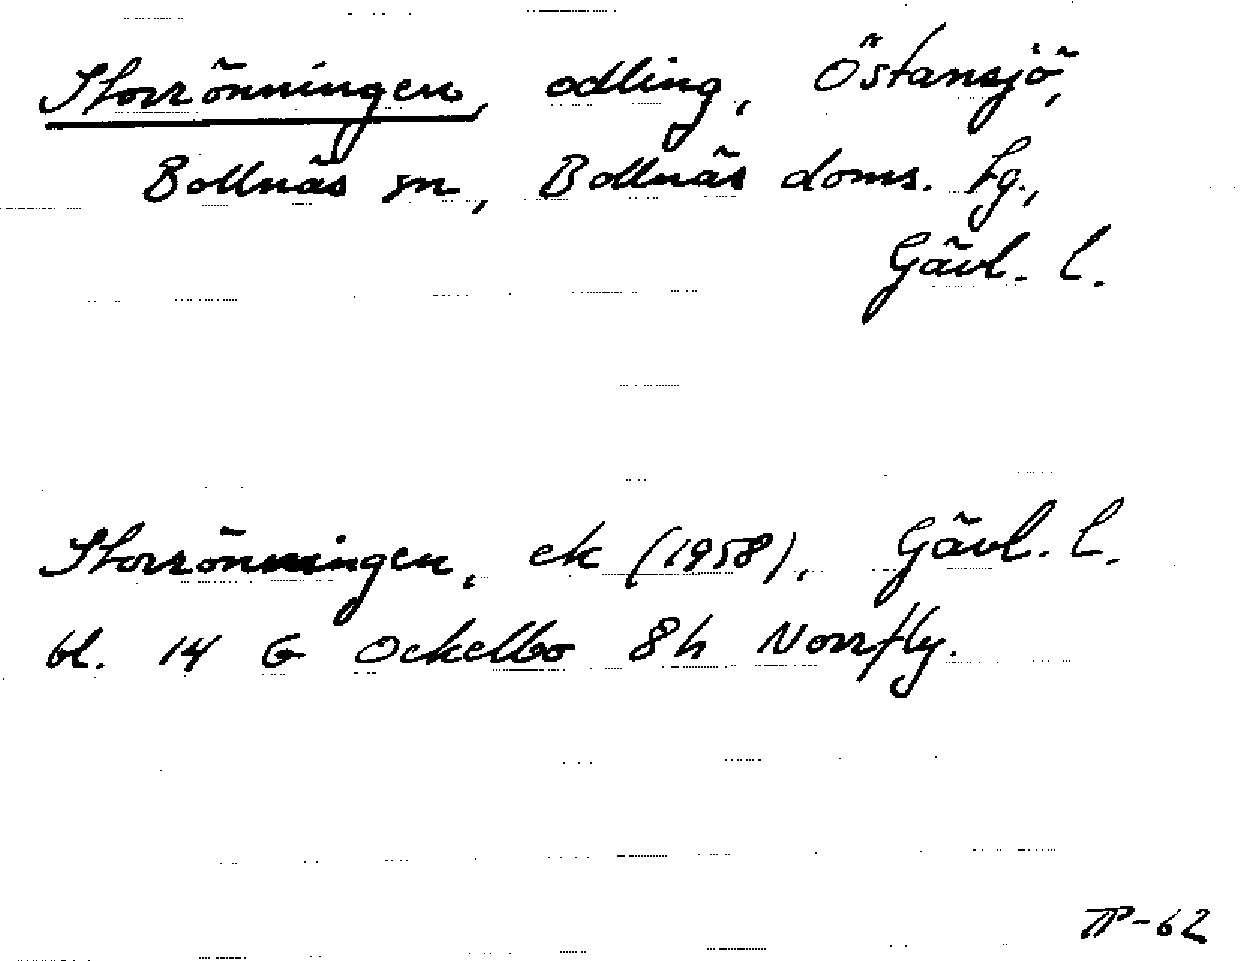 Storrönningen, odling, Östansjö,
Bollnäs sn, Bollnäs doms. tg.,
Gävl. l.
Storrönningen, ek (1958), Gävl. l.
bl. 14 G Ockelbo 8h Norrfly.
TP-62